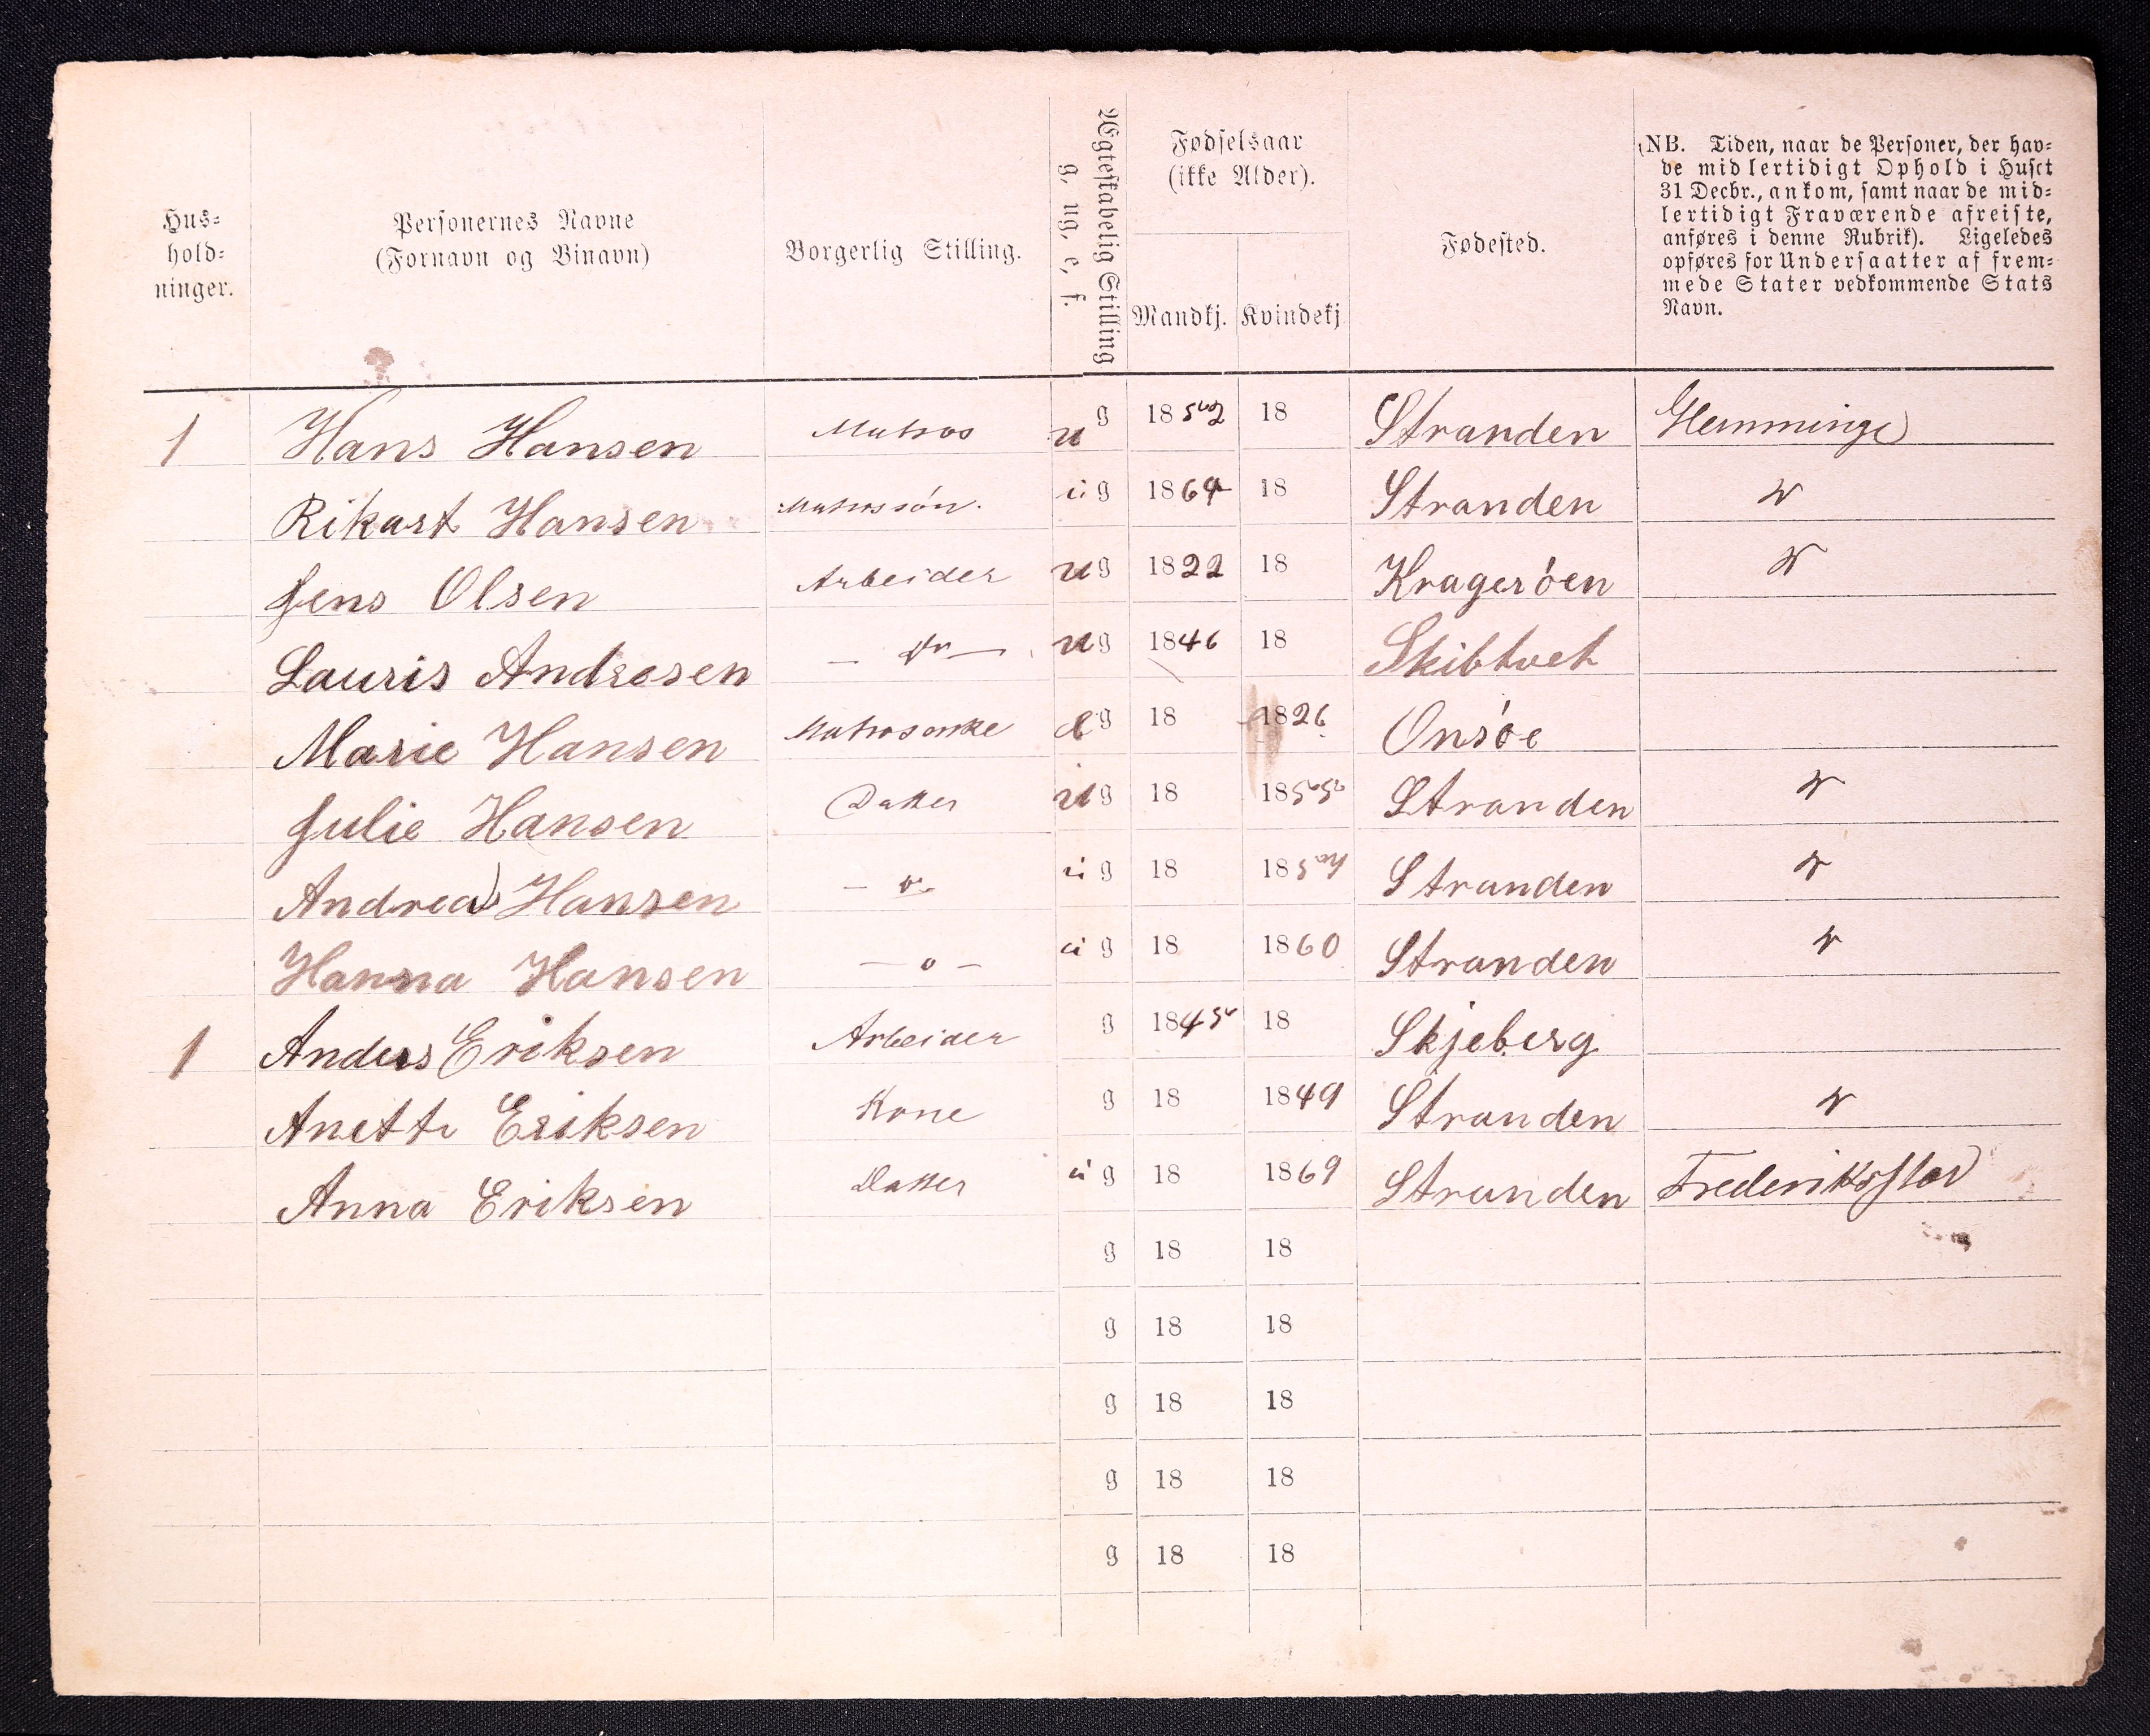 Hus-
hold-
ninger.
Personernes Navne
(Fornavn og Binavn)
Borgerlig Stilling.
Ægteskabelig Stilling
g, ug, e, f.
Fødselsaar
(ikke Alder).
Mandkj. Kvindekj
Fødested.
NB. Tiden, naar de Personer, der hav-
de midlertidigt Ophold i Huset
31 Decbr., ankom, samt naar de mid-
lertidigt Fraværende afreiste,
anføres i denne Rubrik). Ligeledes
opføres for Undersaatter af frem-
mede Stater vedkommende Stats
Navn.
1 Hans Hansen Matros u g 1852 18 Stranden Glemminge
Rikart Hansen Matrossón. u g 1864 18 Stranden
Jens Olsen Arbeider u g 1822 18 Krageróen
Lauris Andresen u g 1846 18 Skibtvet
Marie Hansen Matrosenke e g 18 1826 Onsóe
Julie Hansen Datter u g 18 1855 Stranden
Andrea Hansen u g 18 18 Stranden
Hanna Hansen — o — u g 18 1860 Stranden
1 Anders Eriksen Arbeider g 1845 18 Skjeberg
Anette Eriksen Kone g 18 1849 Stranden
Anna Eriksen Datter u g 18 1869 Stranden Frederiksstad
g 18 18
g 18 18
g 18 18
g 18 18
g 18 18